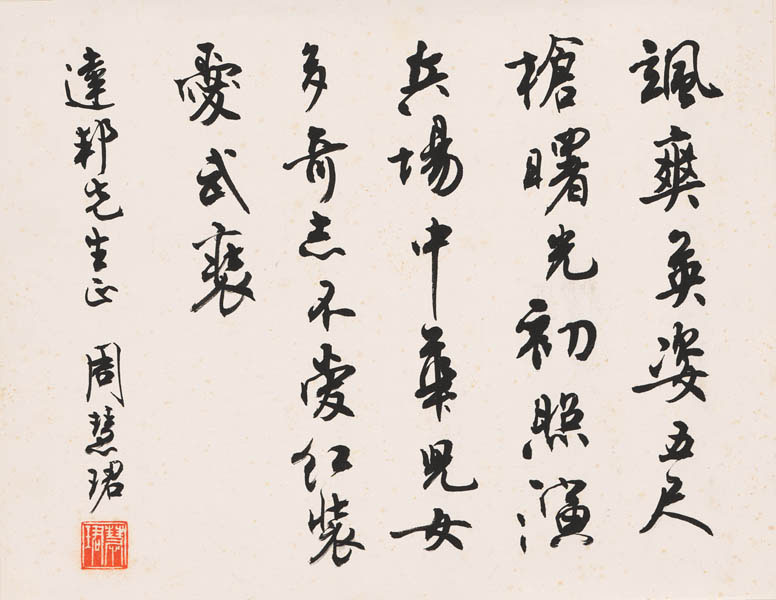 颯爽英姿五尺
槍曙光初照演
兵場中華兒女
多奇志不愛红裝
愛武裝
達邦先生正 周慧珺
慧珺